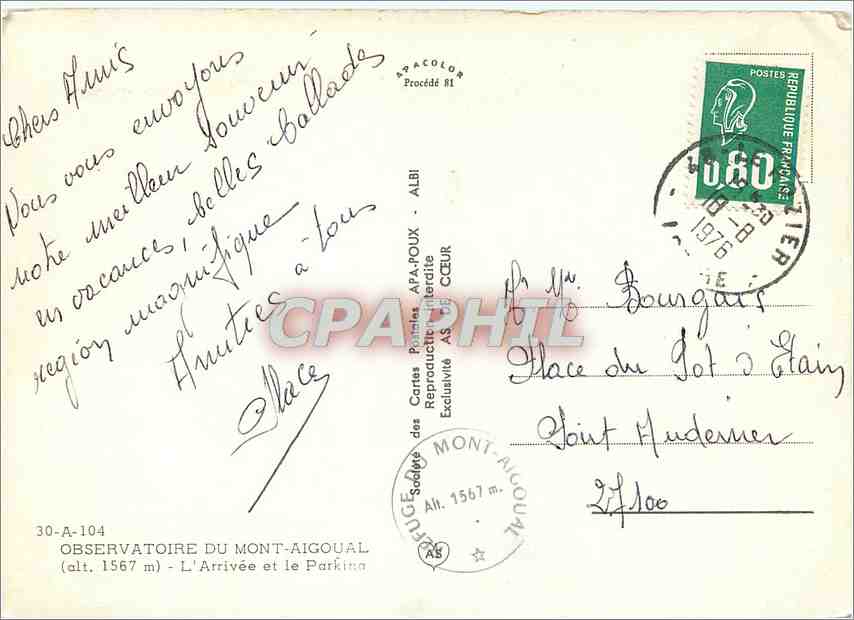 Chers Amis
Nous vous envoyons
notre meilleur souvenir
en vacances, belles ballades
région magnifique
Amitiés à tous
APACOLOR
Procédé 81
Société des Cartes Postales APA-POUX - ALBI
Reproduction interdite
Exclusivité AS DE CŒUR
POSTES
REPUBLIQUE FRANÇAISE
0,80
18-8
1976
CPARPHIL
Bourgais
Place du Pot d Etain
Pont Audemer
27100
REFUGE DU MONT-AIGOUAL
Alt. 1567 m.
AS
30-A-104
OBSERVATOIRE DU MONT-AIGOUAL
(alt. 1567 m) - L'Arrivée et le Parking